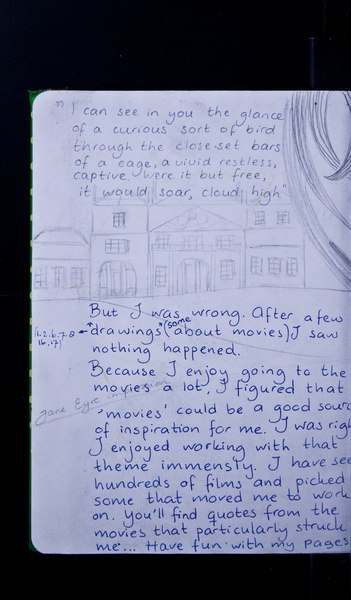 " I can see in you the glance
of a curious sort of bird
through the close-set bars
of a cage, a vivid restless,
captive. Were it but free,
it would soar, cloud high"
But I was wrong. After a few
"drawings" (some about movies) I saw
nothing happened.
Because I enjoy going to the
movies a lot, I figured that
'movies' could be a good sourc
of inspiration for me. I was righ
I enjoyed working with that
theme immensly. I have see
hundreds of films and picked
some that moved me to work
on. You'll find quotes from the
movies that particularly struck
me... Have fun with my pages
Jane Eyre